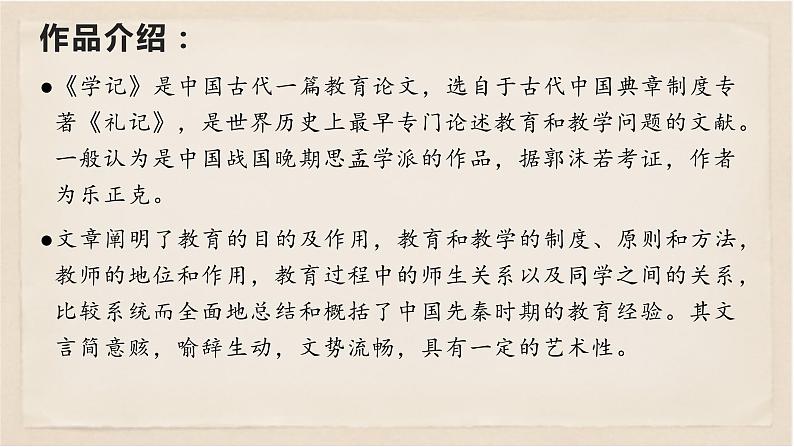 作品介绍：
●《学记》是中国古代一篇教育论文，选自于古代中国典章制度专
著《礼记》，是世界历史上最早专门论述教育和教学问题的文献。
一般认为是中国战国晚期思孟学派的作品，据郭沫若考证，作者
为乐正克。
●文章阐明了教育的目的及作用，教育和教学的制度、原则和方法，
教师的地位和作用，教育过程中的师生关系以及同学之间的关系，
比较系统而全面地总结和概括了中国先秦时期的教育经验。其文
言简意赅，喻辞生动，文势流畅，具有一定的艺术性。